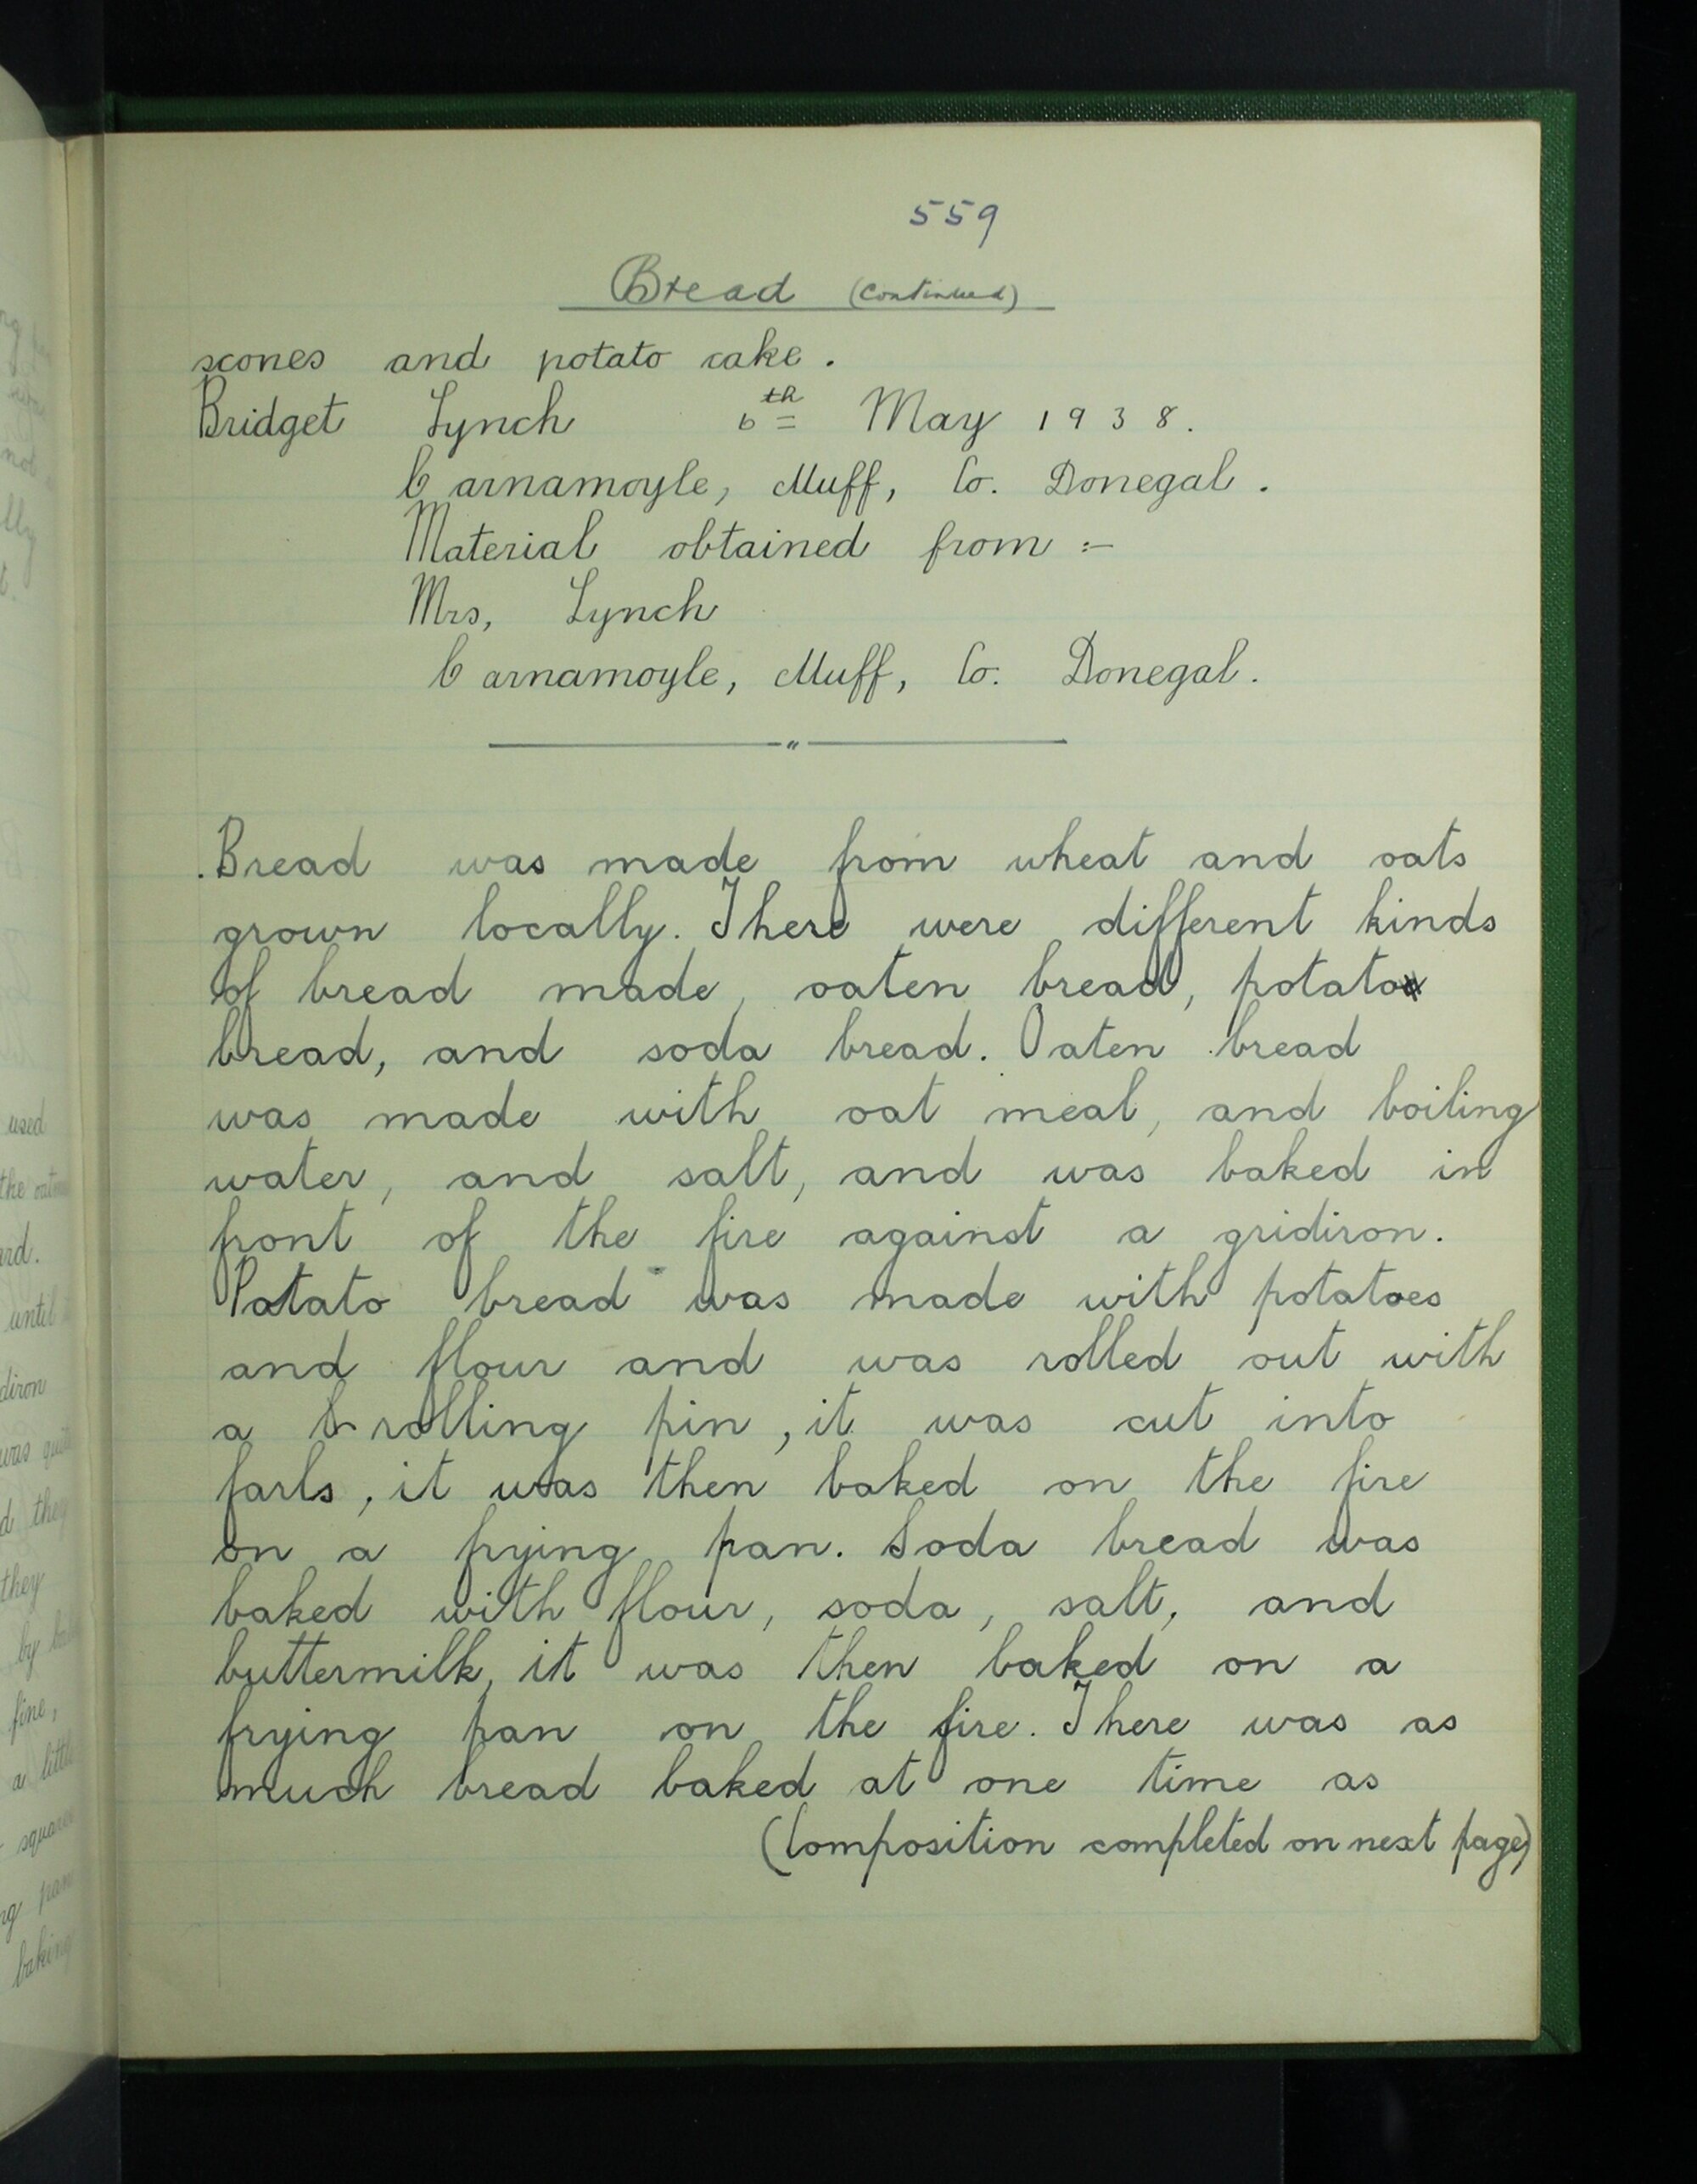 559
Bread (Continued)
scones and potato cake.
Bridget Lynch 6th May 1938.
Carnamoyle, Muff, Co. Donegal.
Material obtained from :-
Mrs, Lynch
Carnamoyle, Muff, Co. Donegal.
Bread was made from wheat and oats
grown locally. There were different kinds
of bread made, oaten bread, potato
bread, and soda bread. Oaten bread
was made with oat meal, and boiling
water, and salt, and was baked in
front of the fire against a gridiron.
Potato bread was made with potatoes
and flour and was rolled out with
a rolling pin, it was cut into
farls, it was then baked on the fire
on a frying pan. Soda bread was
baked with flour, soda, salt, and
buttermilk, it was then baked on a
frying pan on the fire. There was as
much bread baked at one time as
(Composition completed on next page)
used
the
until
was
they
by
fine,
a little
baking